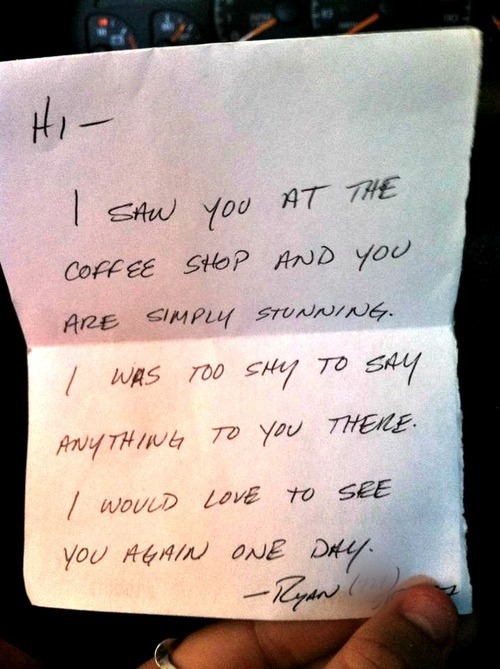 HI —
I SAW YOU AT THE
COFFEE SHOP AND YOU
ARE SIMPLY STUNNING.
I WAS TOO SHY TO SAY
ANYTHING TO YOU THERE.
I WOULD LOVE TO SEE
YOU AGAIN ONE DAY.
—RYAN